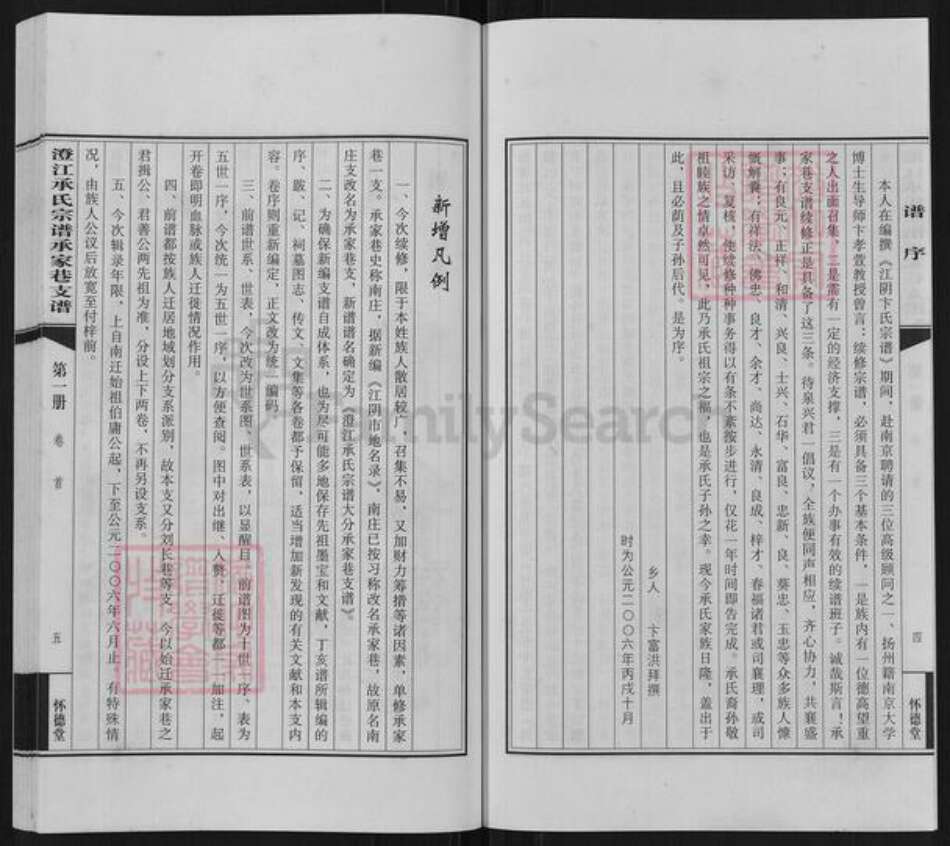 谱序
四
怀德堂
本人在编撰《江阴卞氏宗谱》期间，赴南京聘请的三位高级顾问之一、扬州籍南京大学
博士生导师卞孝萱教授曾言：续修宗谱，必须具备三个基本条件，一是族内有一位德高望重
之人出面召集，二是需有一定的经济支撑，三是有一个办事有效的续谱班子。诚哉斯言！承
家巷支谱续修正是具备了这三条。待泉兴君一倡议，全族便同声相应，齐心协力，共襄盛
事；有良元、正祥、和清、兴良、士兴、石华、富良、忠新、良、葵忠、玉忠等众多族人慷
慨解囊；有祥法、佛忠、良才、余才、尚达、永清、良成、梓才、春福诸君或司襄理，或司
采访、复核，使续修种种事务得以有条不紊按步进行，仅花一年时间即告完成。承氏裔孙敬
祖睦族之情卓然可见，此乃承氏祖宗之福，也是承氏子孙之幸。现今承氏家族日隆，盖出于
此，且必荫及子孙后代。是为序。
乡人 卞富洪拜撰
时为公元二〇〇六年丙戌十月
新增凡例
一、今次续修，限于本姓族人散居较广，召集不易，又加财力筹措等诸因素，单修承家
巷一支。承家巷史称南庄，据新编《江阴市地名录》，南庄已按习称改名承家巷，故原名南
庄支改名为承家巷支，新谱谱名确定为《澄江承氏宗谱大分承家巷支谱》。
二、为确保新编支谱自成体系，也为尽可能多地保存先祖墨宝和文献，丁亥谱所辑编的
序、跋、记、祠墓图志、传文、文集等各卷都予保留，适当增加新发现的有关文献和本支内
容。卷序则重新编定，正文改为统一编码。
三、前谱世系、世表，今次改为世系图、世系表，以显醒目。前谱图为十世一序、表为
五世一序，今次统一为五世一序，以方便查阅。图中对出继、入赘、迁徙等都一一加注，起
开卷即明血脉或族人迁徙情况作用。
四、前谱都按族人迁居地域划分支系派别，故本支又分刘长巷等支，今以始迁承家巷之
君揖公、君善公两先祖为准，分设上下两卷，不再另设支系。
五、今次辑录年限，上自南迁始祖伯庸公起，下至公元二〇〇六年六月止，有特殊情
况，由族人公议后放宽至付梓前。
澄江承氏宗谱承家巷支谱
第一册
卷首
五
怀德堂
FamilySearch